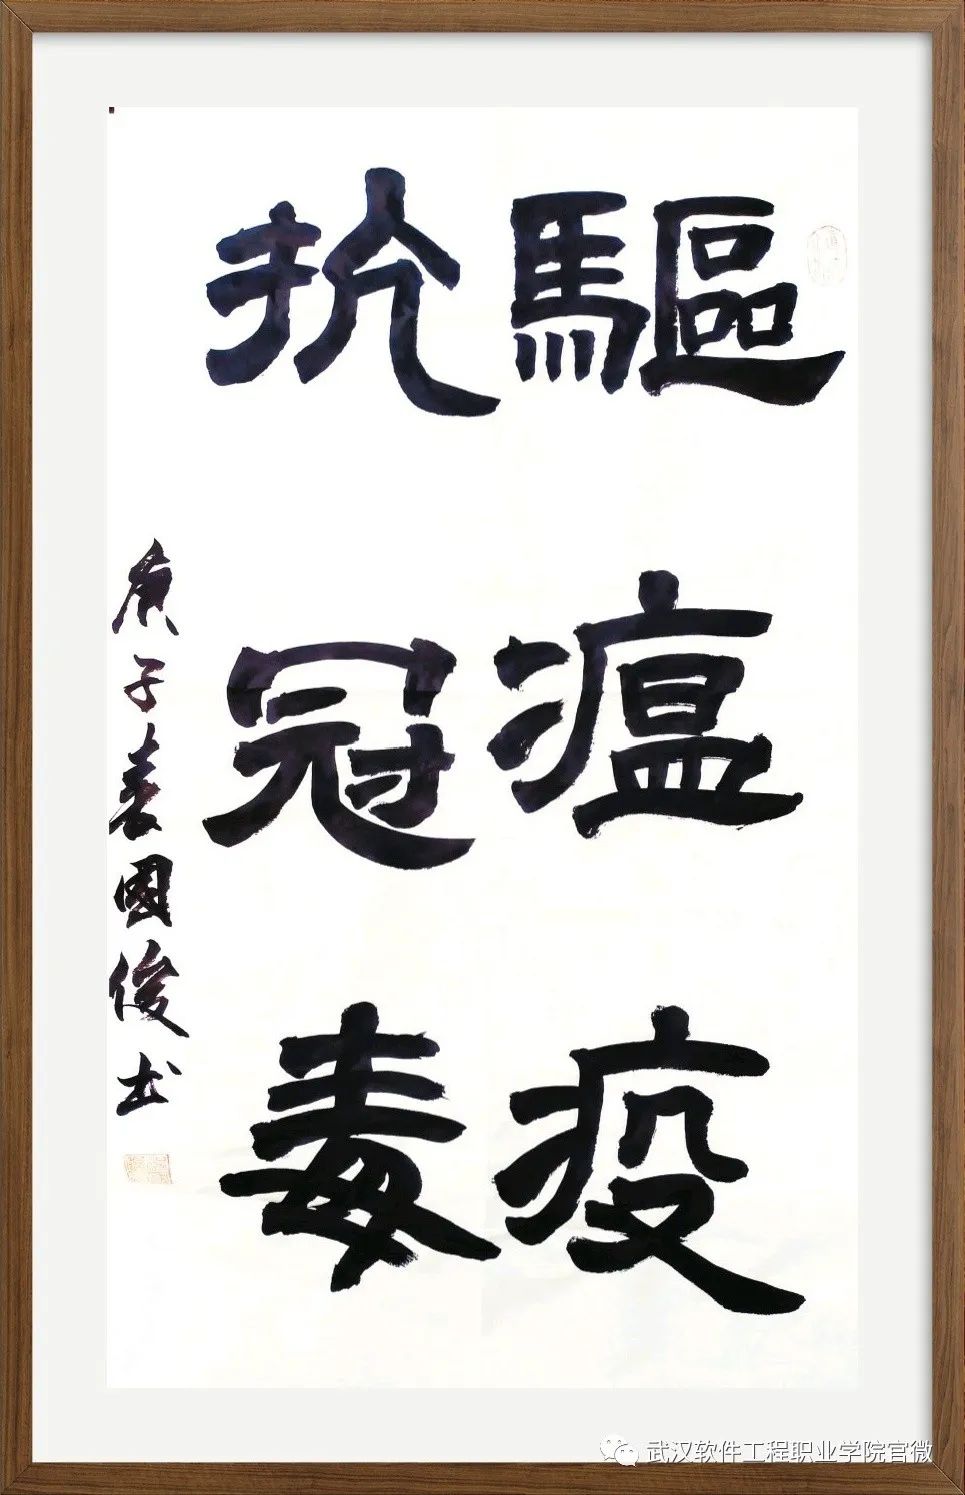 驅瘟疫
抗冠毒
庚子春國俊书
武汉软件工程职业学院官微